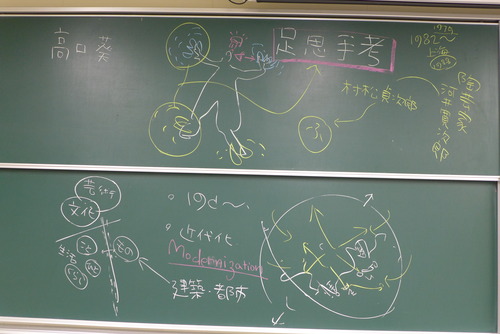 高口 葵
足思手考
1975
1982〜
上海
陶芸家
河井寛次郎
村松貞次郎
芸術
文化
生活
こと
もの
・19C〜
・近代化
Modernization
建築・都市